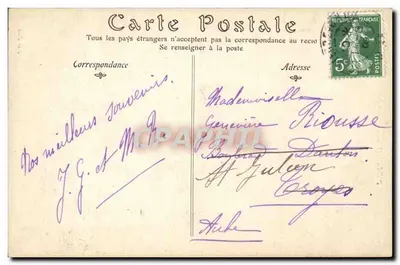 Carte Postale
Tous les pays étrangers n'acceptent pas la correspondance au recto
Se renseigner à la poste
Correspondance
Adresse
Nos meilleurs souvenirs.
J. G. et M. R
Mademoiselle
Geneviève Riousse
Danton
St Julien
Troyes
Aube
5c
POSTES